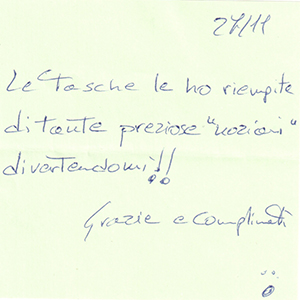 27/11
Le Tasche le ho riempite
di tante preziose "nozioni"
divertendomi!!
Grazie e complimenti